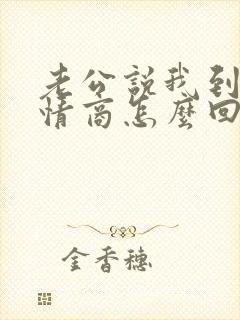 老公說我到
情商怎麼回
金香穗